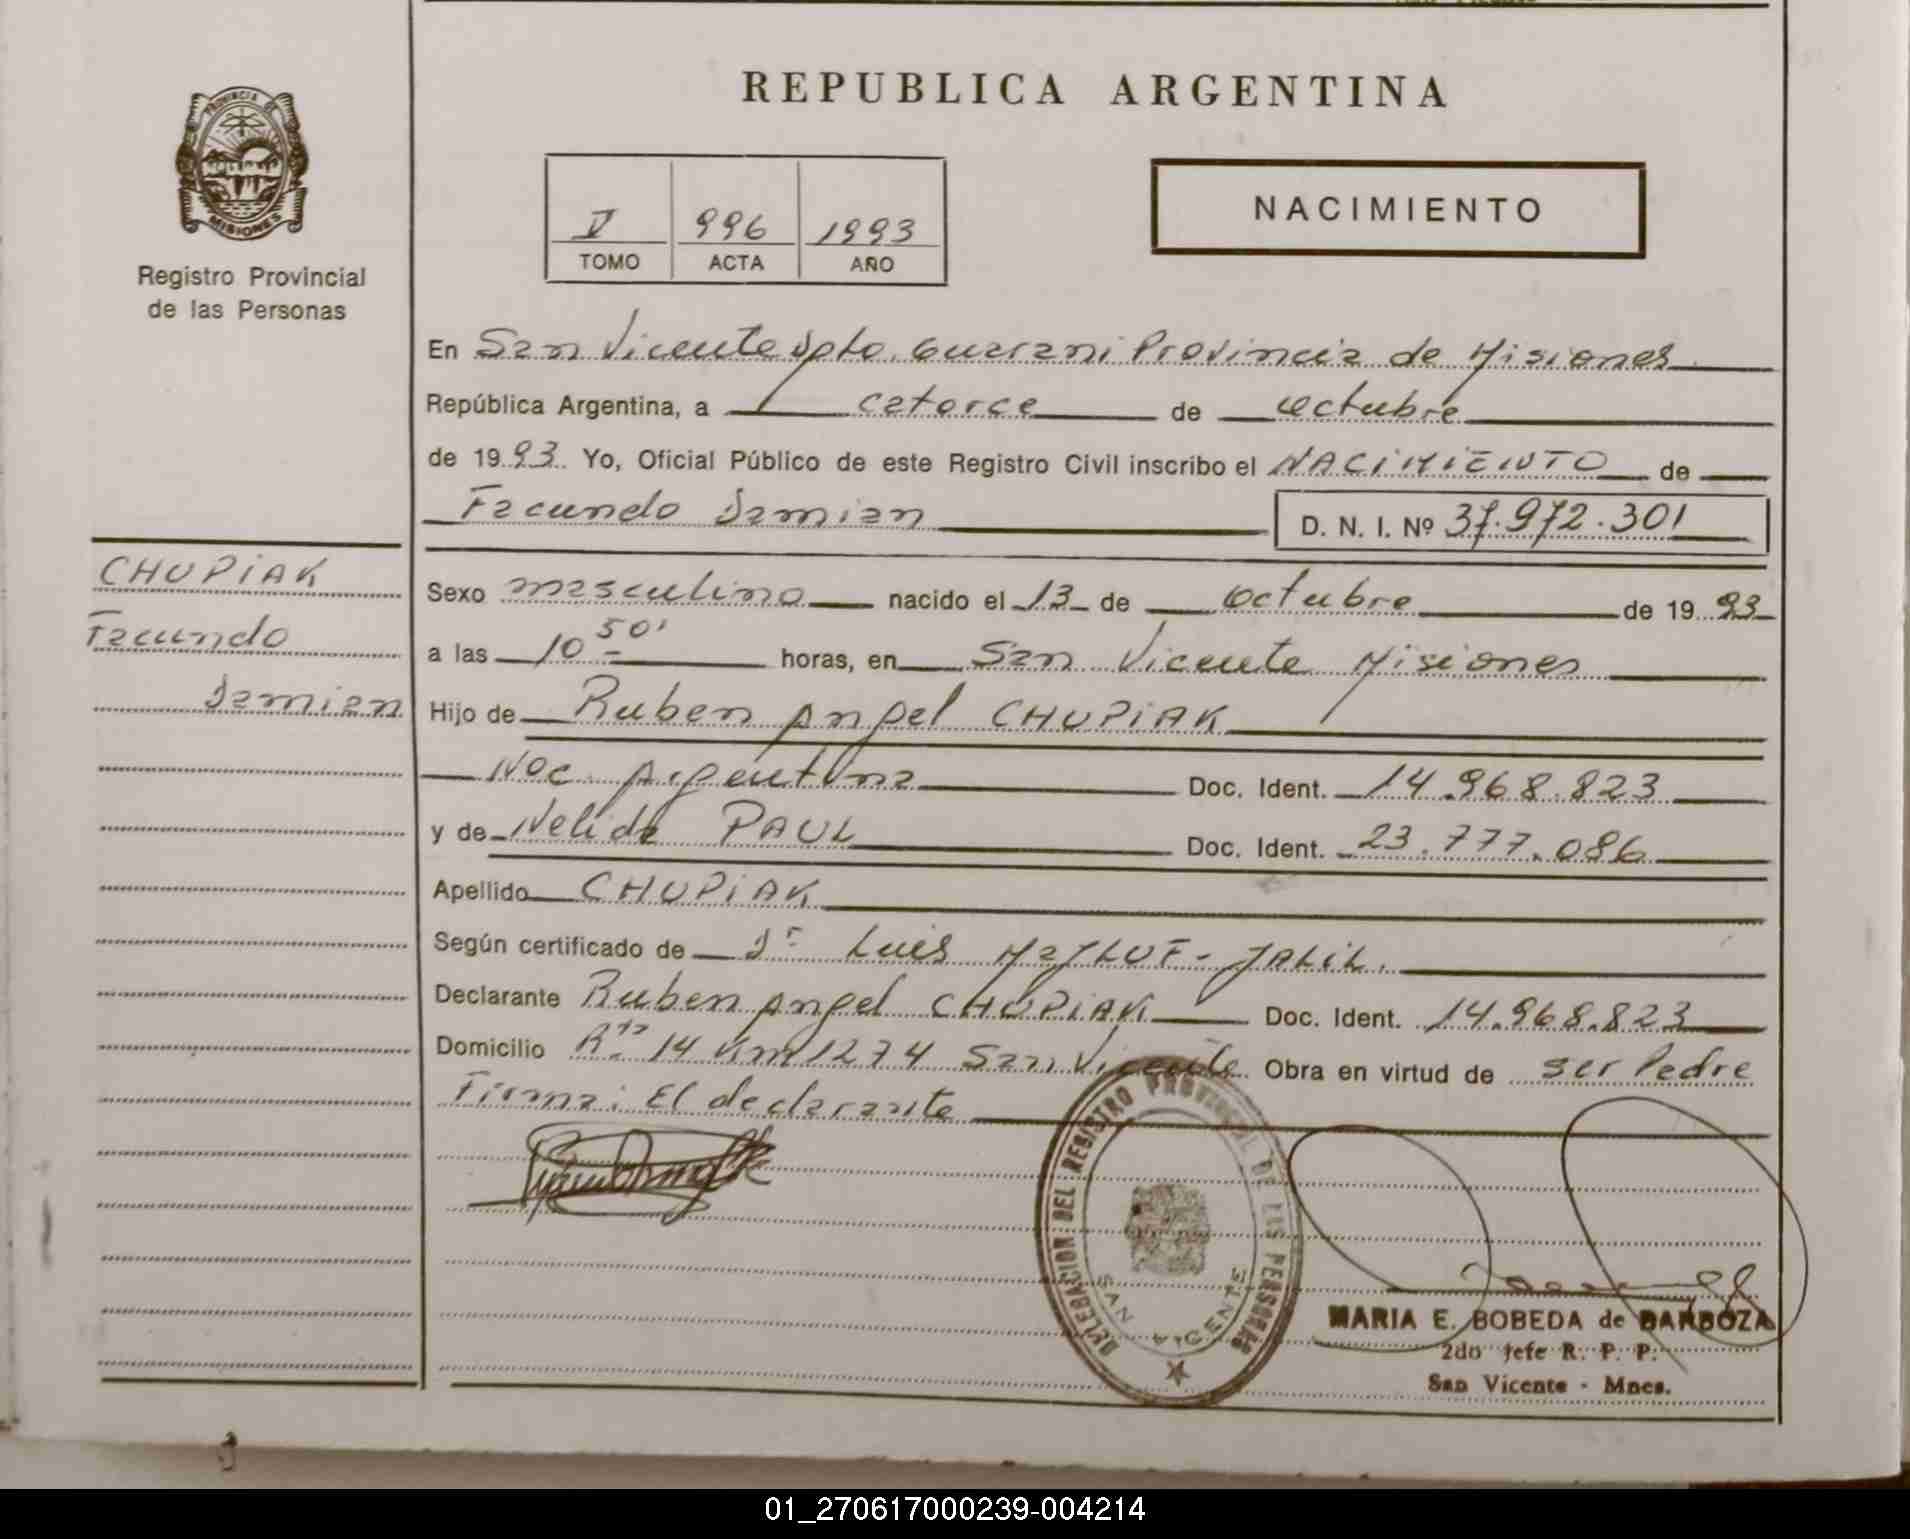 REPUBLICA ARGENTINA
PROVINCIA DE
MISIONES
Registro Provincial
de las Personas
V 996 1993
TOMO ACTA AÑO
NACIMIENTO
En San Vicente Dpto. Guarani Provincia de Misiones
República Argentina, a catorce de octubre
de 1993. Yo, Oficial Público de este Registro Civil inscribo el NACIMIENTO de
Facundo Damian D. N. I. Nº 37.972.301
CHUPIAK
Facundo
Damian
Sexo masculino nacido el 13 de octubre de 1993
a las 10 50' horas, en San Vicente Misiones
Hijo de Ruben Angel CHUPIAK
Nac. Argentina Doc. Ident. 14.968.823
y de Nelida PAUL Doc. Ident. 23.777.086
Apellido CHUPIAK
Según certificado de Dr Luis MAJLUF-JALIL.
Declarante Ruben Angel CHUPIAK Doc. Ident. 14.968.823
Domicilio Rta 14 Km 1274 San Vicente Obra en virtud de ser Padre
Firma: El declarante
DELEGACION DEL REGISTRO PROVINCIAL DE LAS PERSONAS
SAN VICENTE
MARIA E. BOBEDA de BARBOZA
2do Jefe R. P. P.
San Vicente - Mnes.
01_270617000239-004214